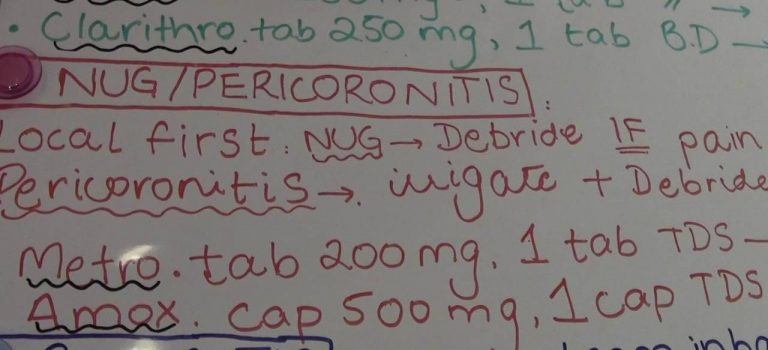 • Clarithro. tab 250 mg, 1 tab B.D →
NUG/PERICORONITIS:
Local first: NUG → Debride IF pain
Pericoronitis → irrigate + Debride
Metro. tab 200 mg. 1 tab TDS –
Amox. cap 500 mg, 1 cap TDS